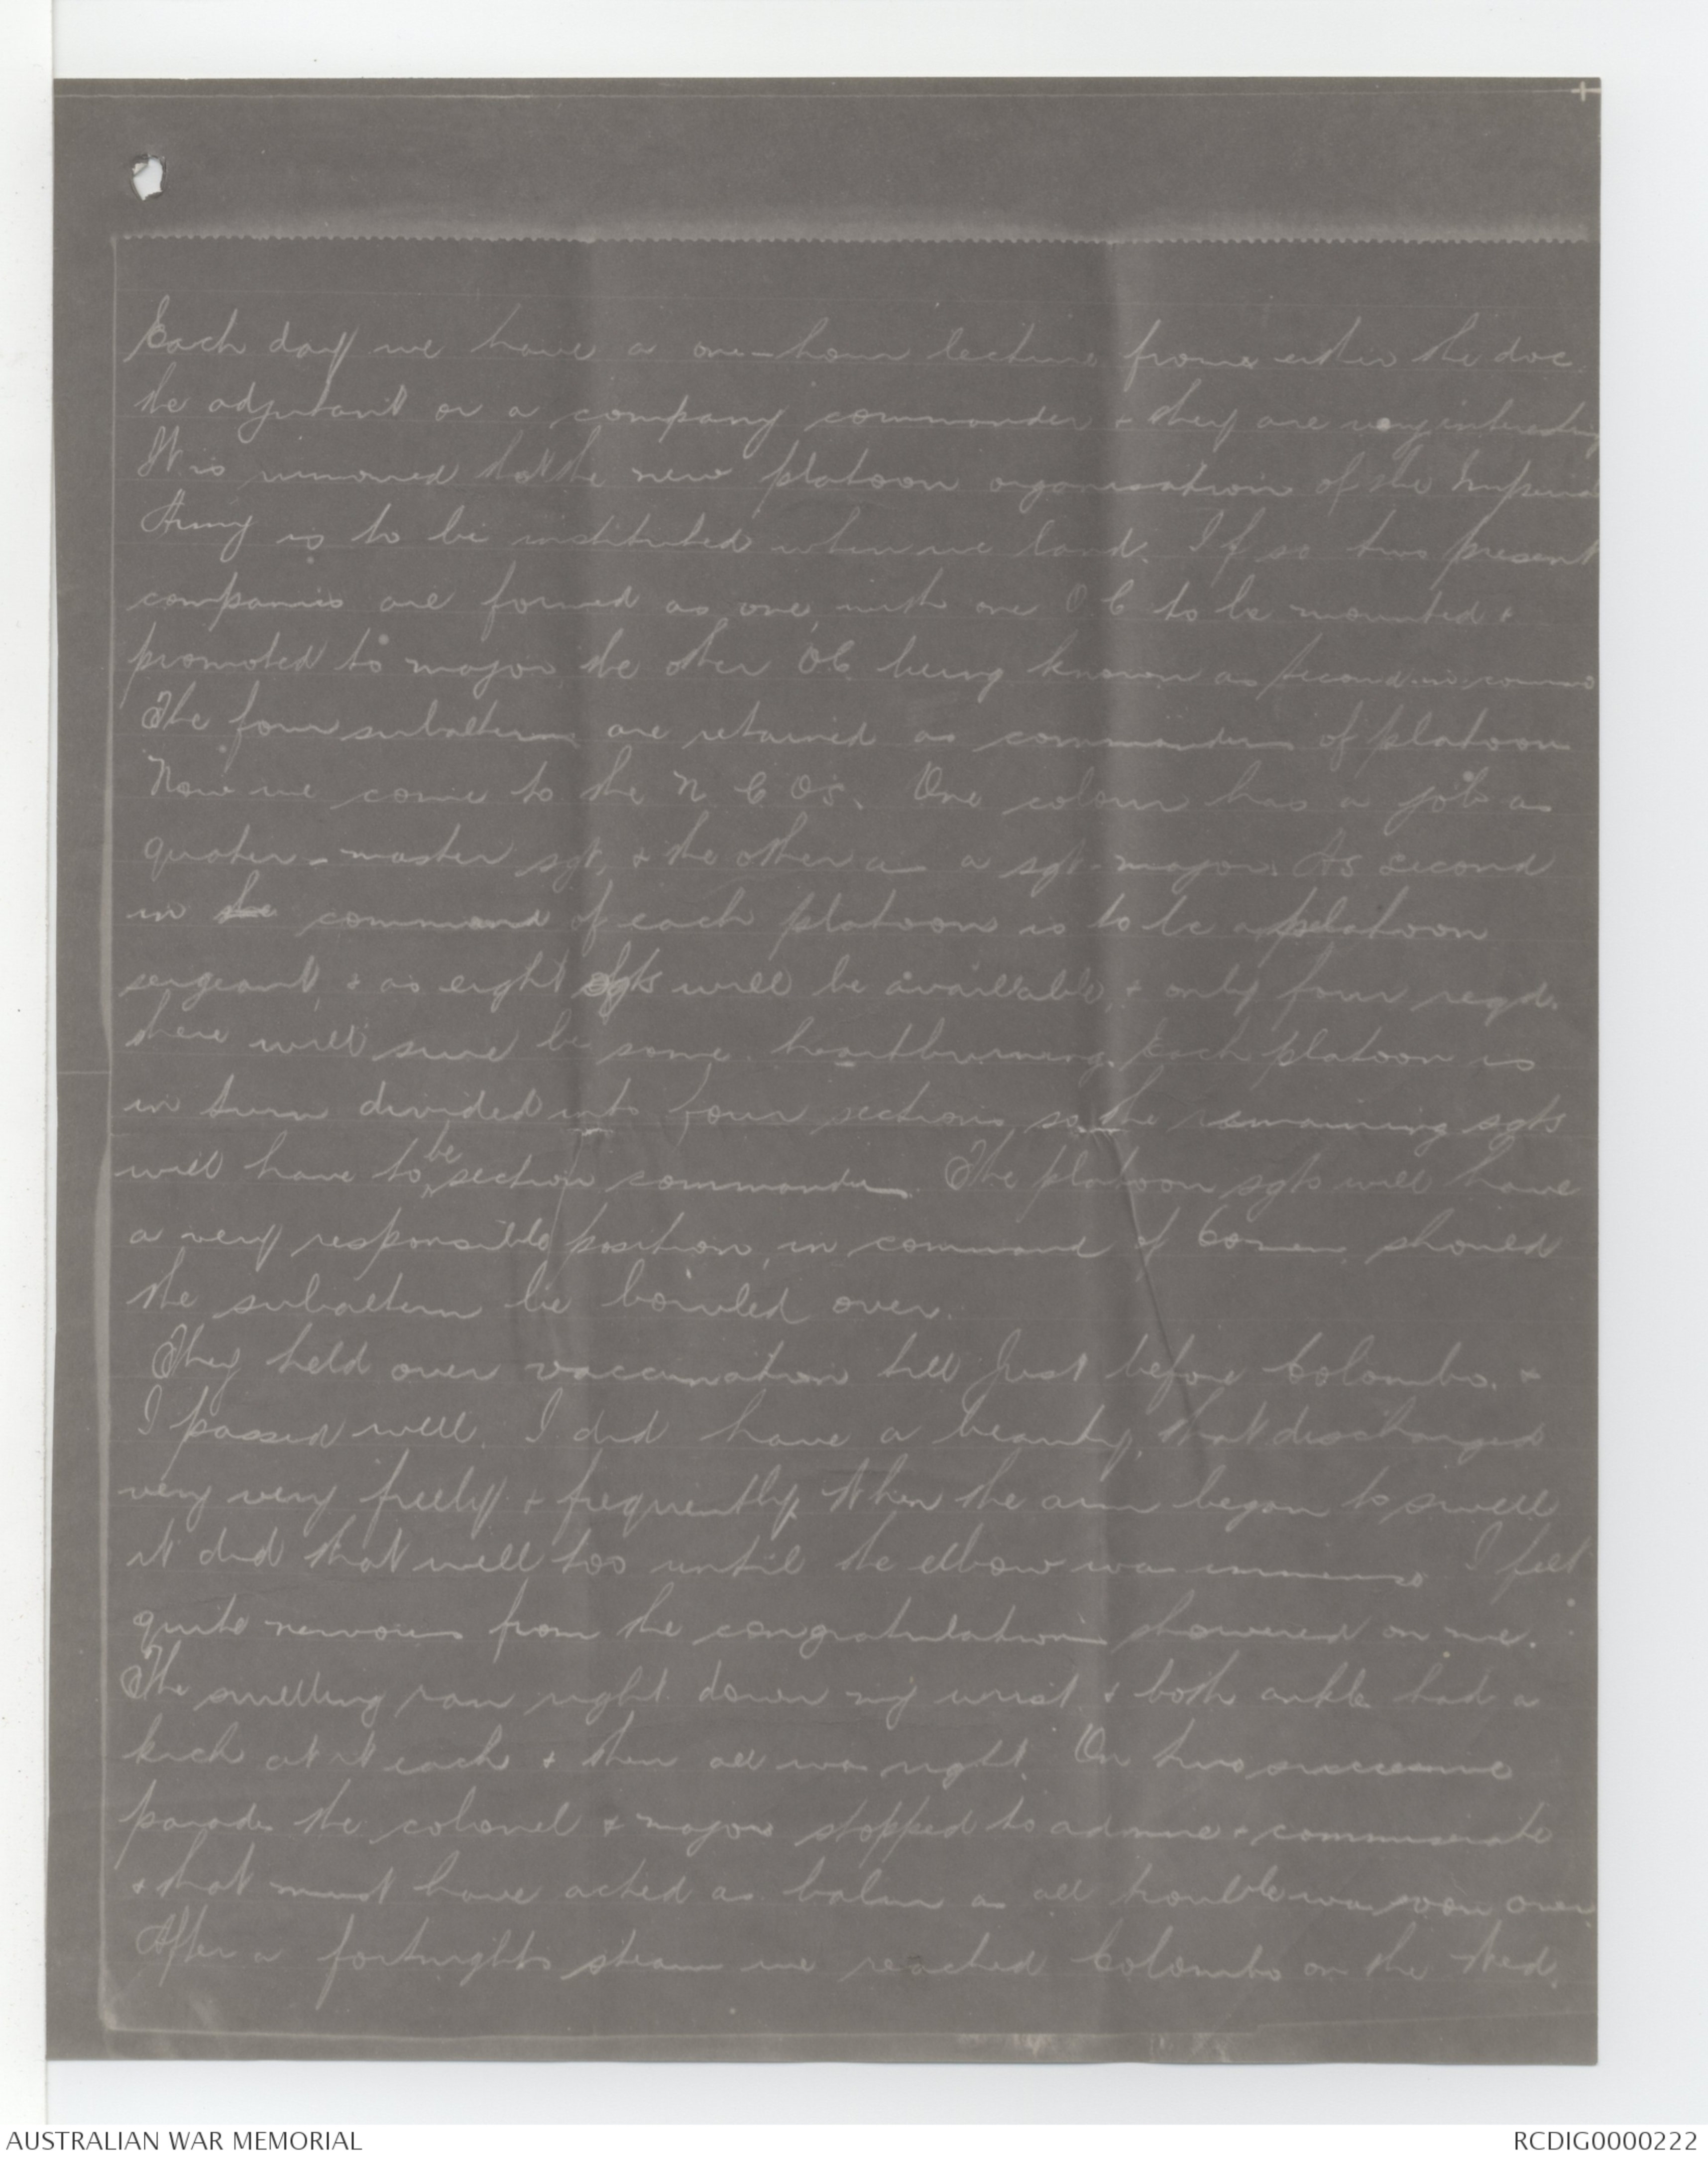 Each day we have a one-hour lecture from either the doc.
the adjutant or a company commander & they are very interesting
It is rumoured that the new platoon organisation of the Imperial
Army is to be instituted when we land. If so two present
companies are formed as one, with one O.C. to be mounted &
promoted to major, the other O.C. being known as second in comm
The four subalterns are retained as commanders of platoons
Now we come to the N.C.O's. One colour has a job as
quater-master sgt, & the other as a sgt-major. As second
in the command of each platoon is to be a platoon
sergeant, & as eight sgts will be available, & only four reqd.
there will sure be some heartburning. Each platoon is
in turn divided into four sections so the remaining sgts
will have to be section commanders. The platoon sgts will have
a very responsible position, in command of 60 men, should
the subaltern be bowled over.
They held over vaccination till just before Colombo, &
I passed well. I did have a beauty, that discharged
very very freely & frequently. When the arm began to swell
it did that well too until the elbow was immense. I felt
quite nervous from the congratulations showered on me.
The swelling ran right down my wrist & both ankle had a
kick at it each & then all was right. On two successive
parades the colonel & major stopped to admire & commiserate
& that must have acted as balm as all trouble was soon over.
After a fortnights steam we reached Colombo on the Wed.
AUSTRALIAN WAR MEMORIAL
RCDIG0000222